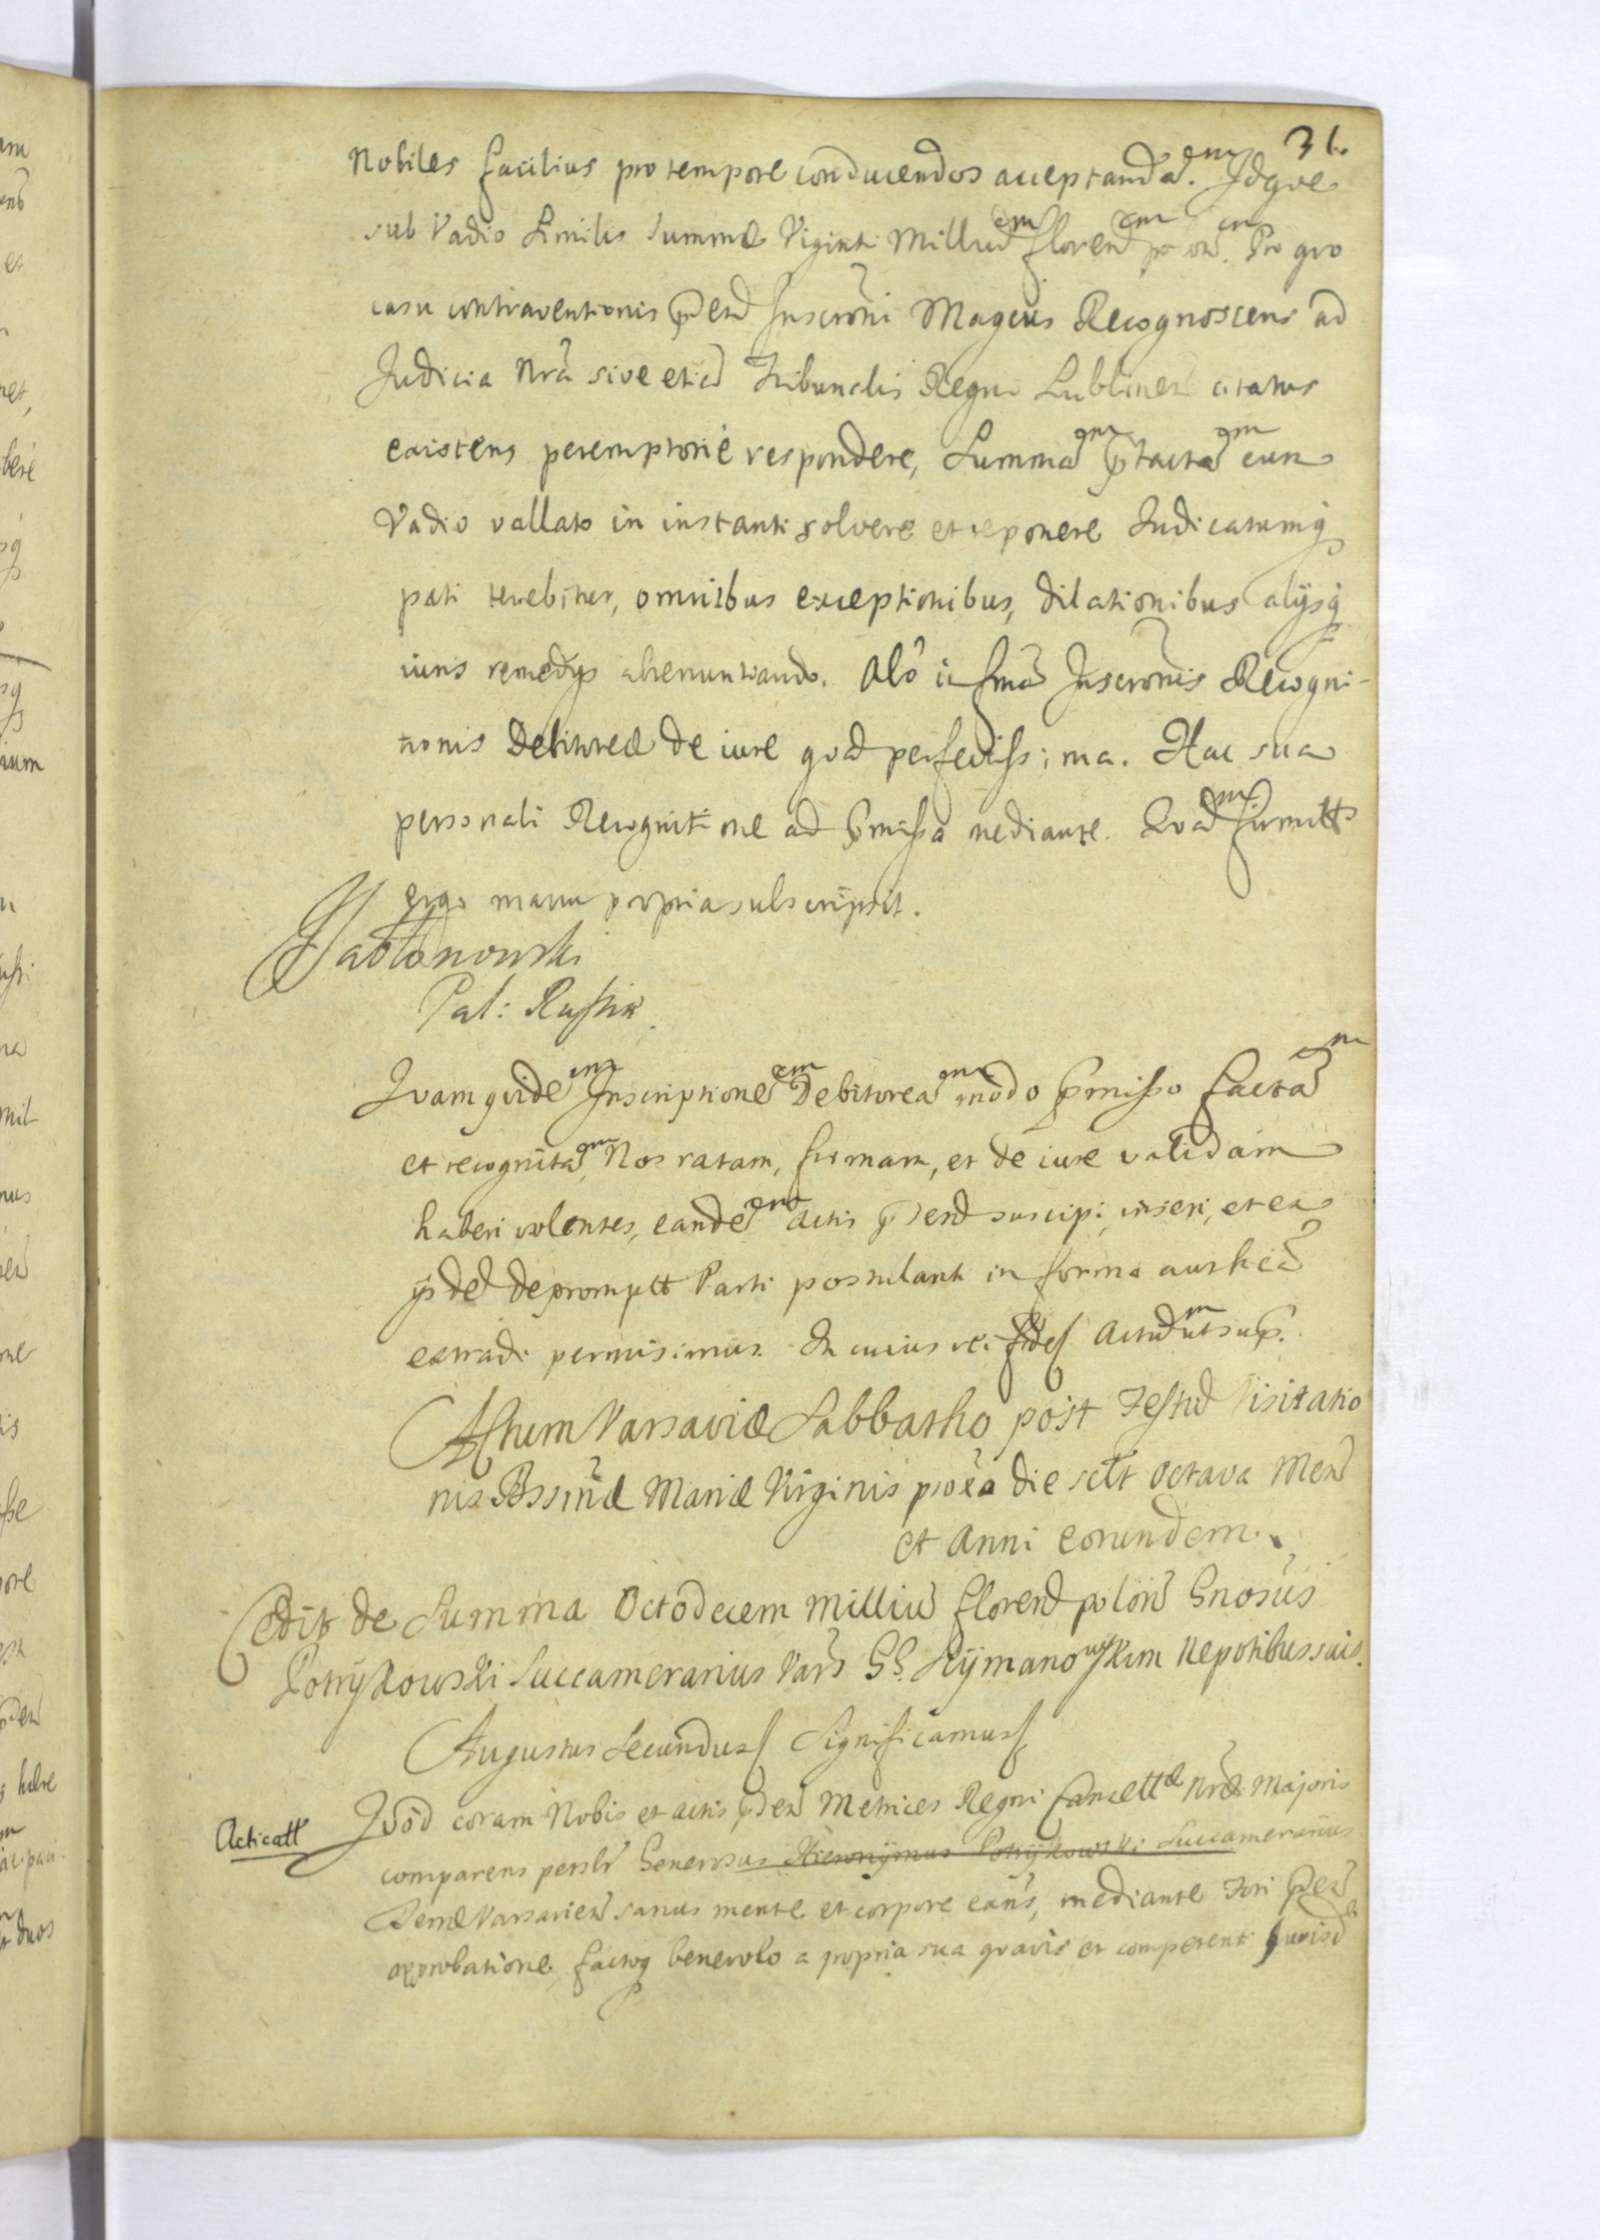 31.
Nobiles facilius pro tempore conducendos acceptandã. Idque
sub Vadio similis summæ Viginti Milliũ florenõ. Pro quo
casu contraventionis Inscrõni Magcus Recognoscens ad
Judicia Nrã sive etiã Tribunalis Regni Lublinen citatus
existens peremptorié respondere, Summã ptactã cum
Vadio vallato in instanti solvere et reponere Judicatumq
pati tenebitur, omnibus exceptionibus, dilationibus alijsq
iuris remedijs abrenuntiando. Inscrõnis Recogni-
tionis Debitoreæ de iure perfectissima. Hac sua
personali Recognitione ad pmissa mediante.
ergo manu propria subscripsit.
Jabłonowski
Pal: Russiæ
Quamquidẽ Inscriptionẽ Debitoreã modo pmisso factã
et recognitã Nos ratam, firmam, et de iure validam
haberi volentes, eandẽ actis suscipi, inseri, et ex
ijsdẽ depromptt Parti postulanti in forma authcã
extradi permisimus. In cuius rei fidẽ Actũ ut sup.
Actum Varsaviæ Sabbatho post Festũ Visitatio
nis Bssmæ Mariæ Virginis proxã die sclt octava Mens
et Anni eorundem.
Cedit de Summa Octodecem Milliũ floren polon Gnosus
Potrÿkowski Succamerarius Vars GG. Rÿmanowskim Nepotibus suis.
Augustus Secundus Significamus
Acticatt
Quod coram Nobis et actis pñ Metrices Regni Cancellæ Nræ Majoris
comparens perslr Generosus Hieronÿmus Potrÿkowski Succamerarius
Terræ Varsavien sanus mente et corpore exñs, mediante Fori
approbatione, factoq benevolo a propria sua quavis et competenti Jurisd